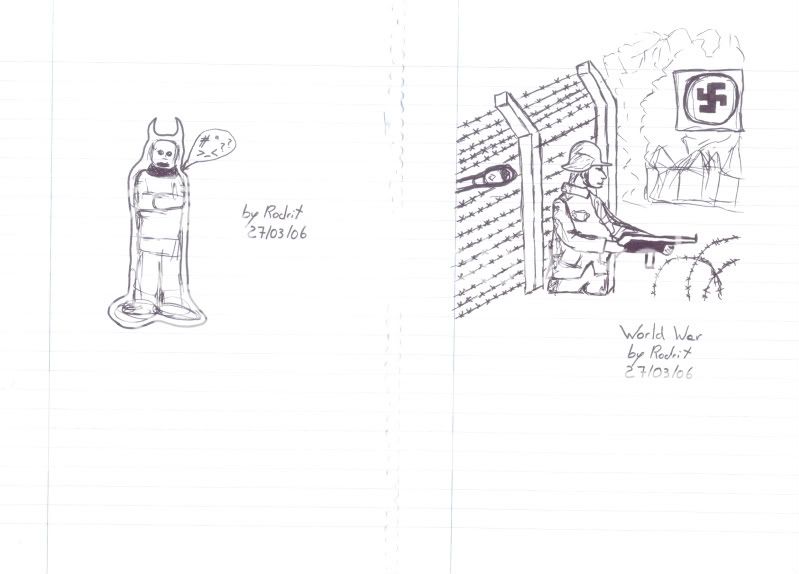 #"??
>_<
by Rodrit
27/03/06
World War
by Rodrit
27/03/06